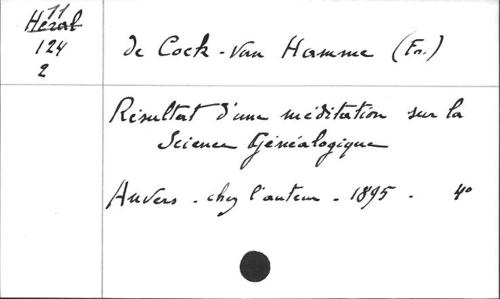 11
Héral
124
2
de Cock-Van Hamme (Fr.)
Résultat d'une méditation sur la
Science Généalogique
Anvers - chez l'auteur - 1895 - 4o